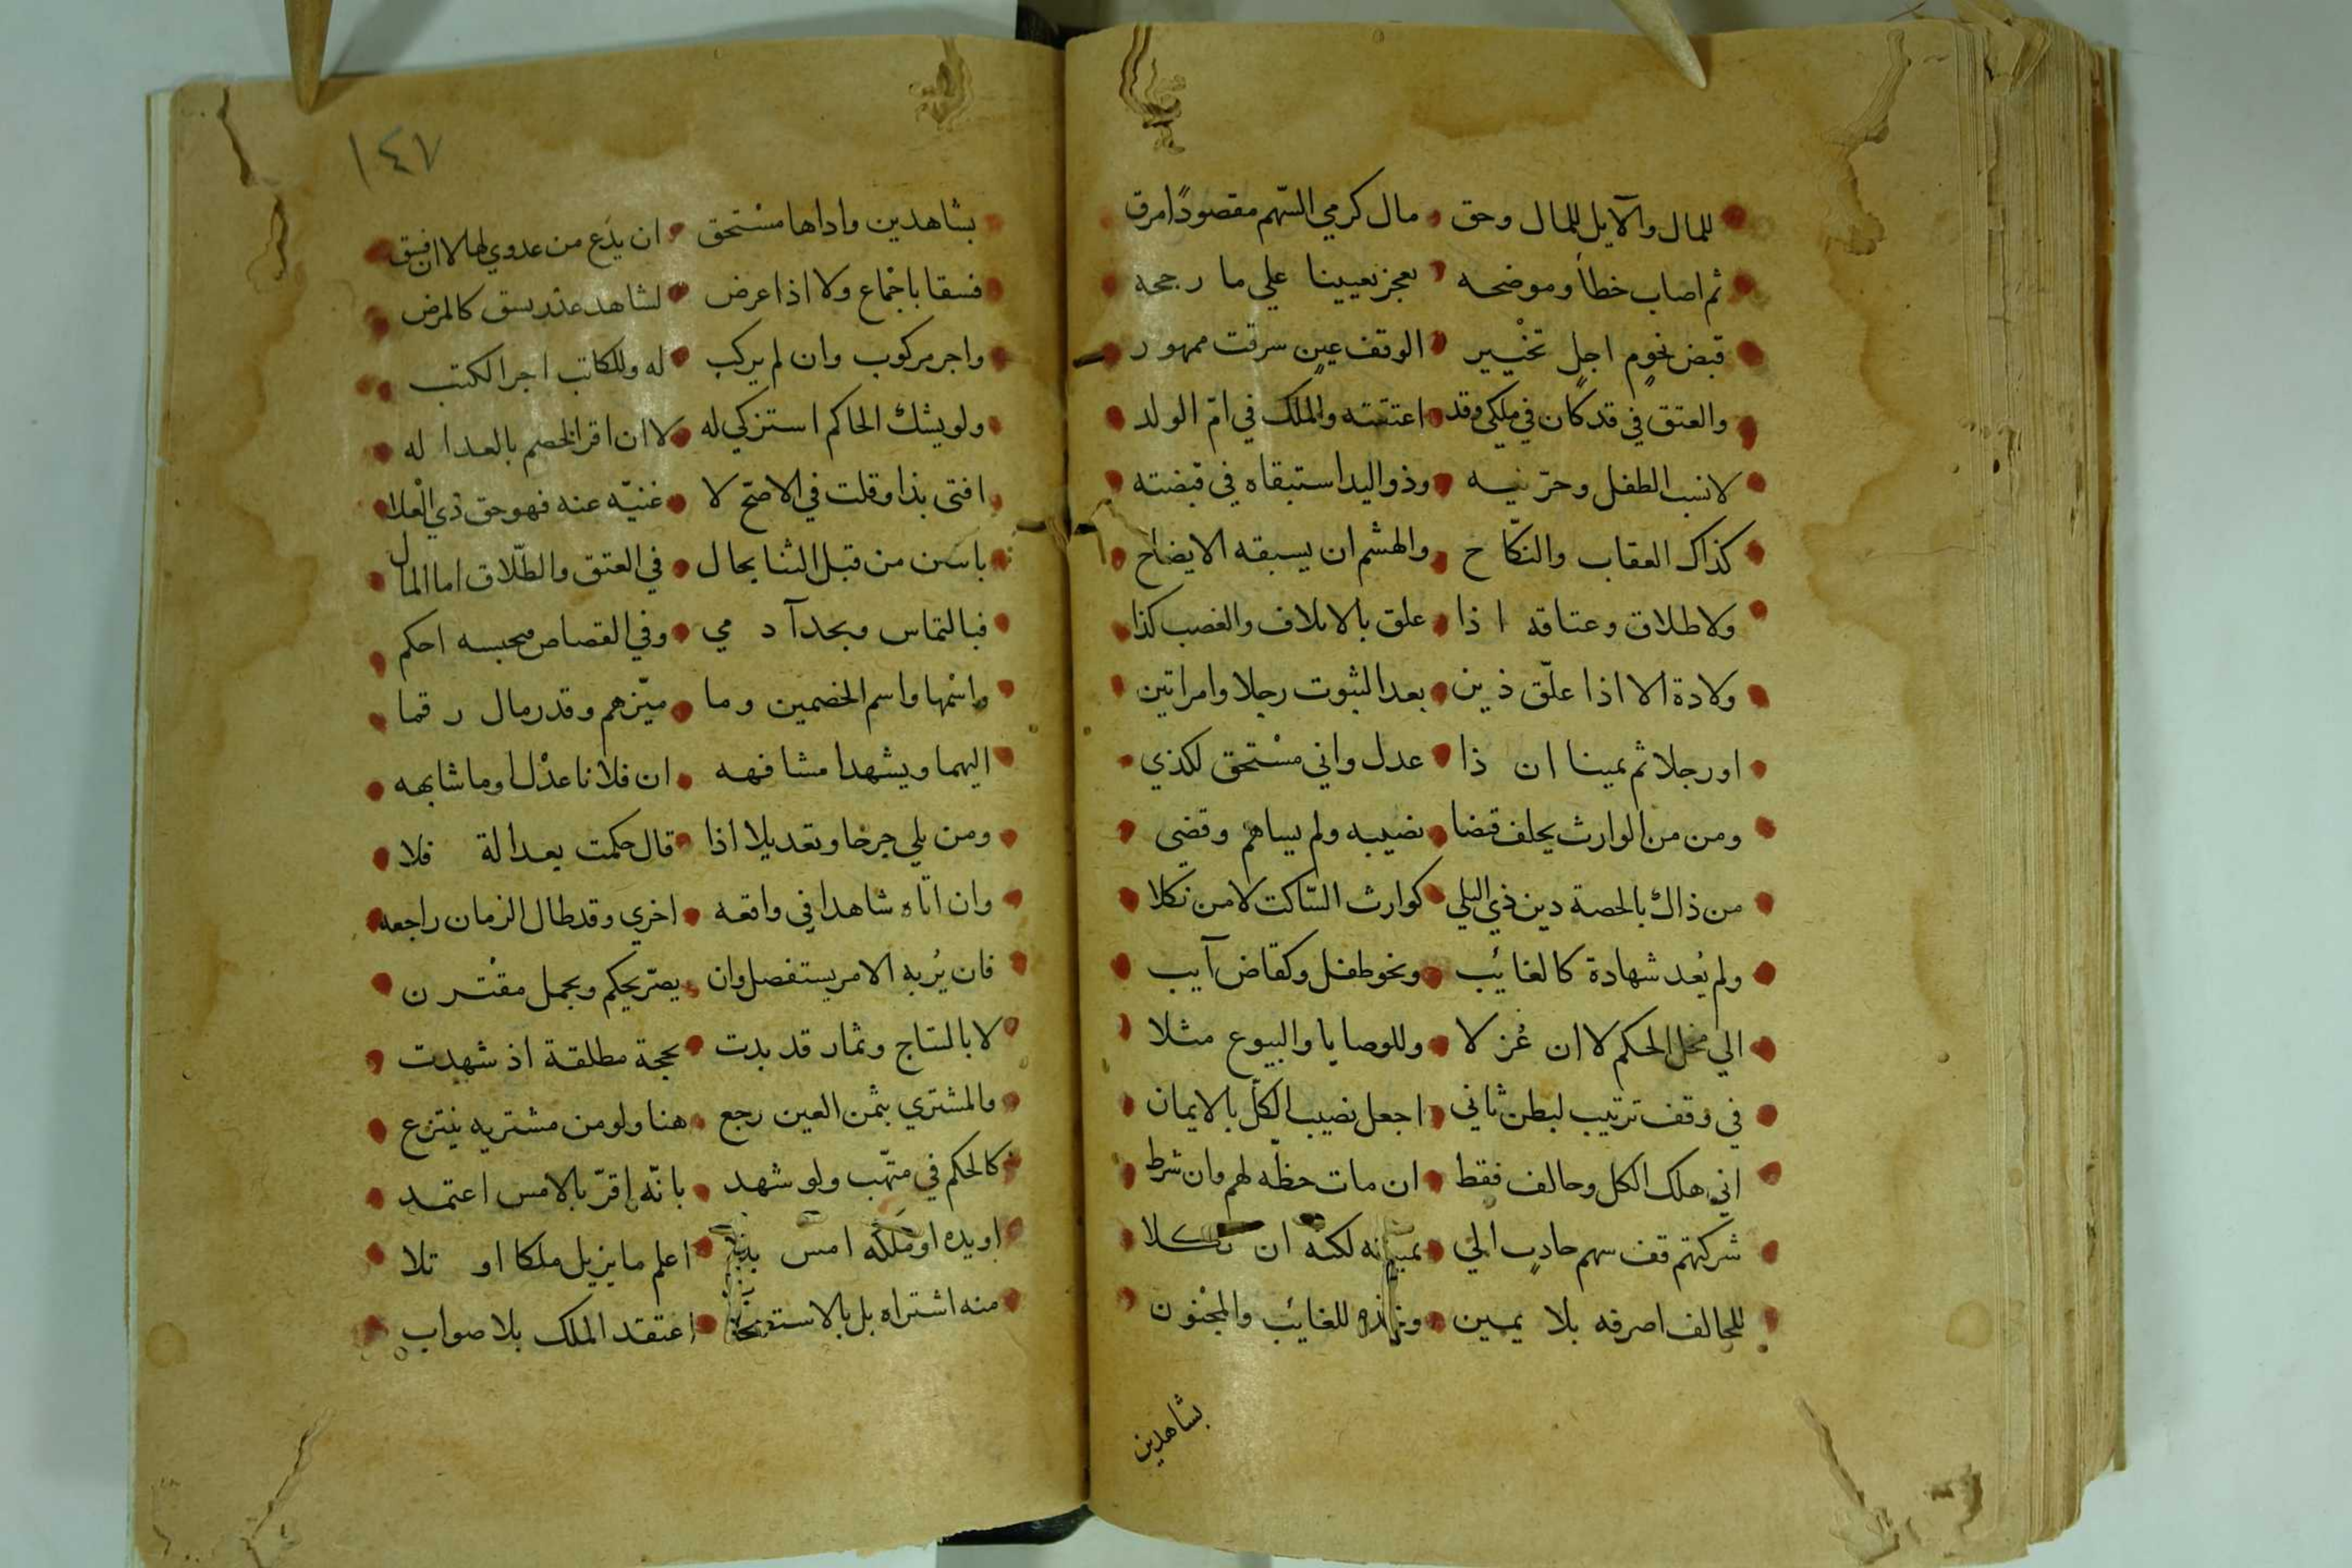 للمال والآيل للمال وحق مال كرمي السّهم مقصودًا مرق
ثم اصاب خطأ وموضحه بعجز تعيينا علي ما رجحه
قبض نجوم اجل تخيير الوقف عين سرقت ممهور
والعتق في قد كان في ملكي وقد اعتقته والملك في امّ الولد
لا نسب الطفل وحرّنيه وذو اليد استبقاه في قبضته
كذاك العقاب والنكّاح والهشم ان يسبقه الايضاح
ولا طلاق وعتاقه اذا علق بالاتلاف والغصب كذا
ولادة الا اذا علّق ذين بعد الثبوت رجلا وامراتين
او رجلا ثم يمينا ان ذا عدل واني مستحق لكذي
ومن من الوارث يحلف قضا نصيبه ولم يساهم وقضى
من ذاك بالحصة دين ذي البلي كوارث السّاكت لا من نكلا
ولم يُعد شهادة كالغائب ونحو طفل وكقاض آيب
الي محل الحكم لا ان عُزلا وللوصايا والبيوع مثلا
في وقف ترتيب لبطن ثاني اجعل نصيب الكل بالايمان
اني هلك الكل وحالف فقط ان مات حظّه لهم وان شرط
شركتهم قف سهم حادب الي يمينه لكنه ان نكلا
للحالف اصرفه بلا يمين للغائب والمجنون
بشاهدين
١٤٧
بشاهدين واداها مستحق ان يدّع من عدوي لها لا ان فسق
فسقا باجماع ولا اذا عرض لشاهد عذر يسق كالمرض
واجر مركوب وان لم يركب له وللكاتب اجر الكتب
ولو يشك الحاكم استزكي له لا ان اقر الخصم بالعدا له
افتى بذا وقلت في الاصّح لا غنيّه عنه فهو حق ذي العلا
باسن من قبل الثنا بحال في العتق والطّلاق اما المال
فبالتماس وبحد آدمي وفي القصاص محبسه احكم
واسْمها واسم الخصمين وما ميّزهم وقدر مال رقما
اليهما ويشهدا مشافهه ان فلانا عدْل او ما شابهه
ومن يلي جرحا وتعديلا اذا قال حكمت بعدالة فلا
وان اتاه شاهدا في واقعه اخري وقد طال الزمان راجعه
فان يُربه الامر يستفصل وان يصرّ يحكم وبجمل مقترن
لا بالنتاج وثمار قد بدت بحجة مطلقة اذ شهدت
والمشتري بثمن العين رجع هنا ولو من مشتريه ينتزع
كالحكم في متهّب ولو شهد بانّه اقرّ بالامس اعتمد
او يده او مَلَكَه امس اعلم ما يزيل ملكا او تلا
منه اشتراه بل بالاستصحاب اعتقد الملك بلا صواب